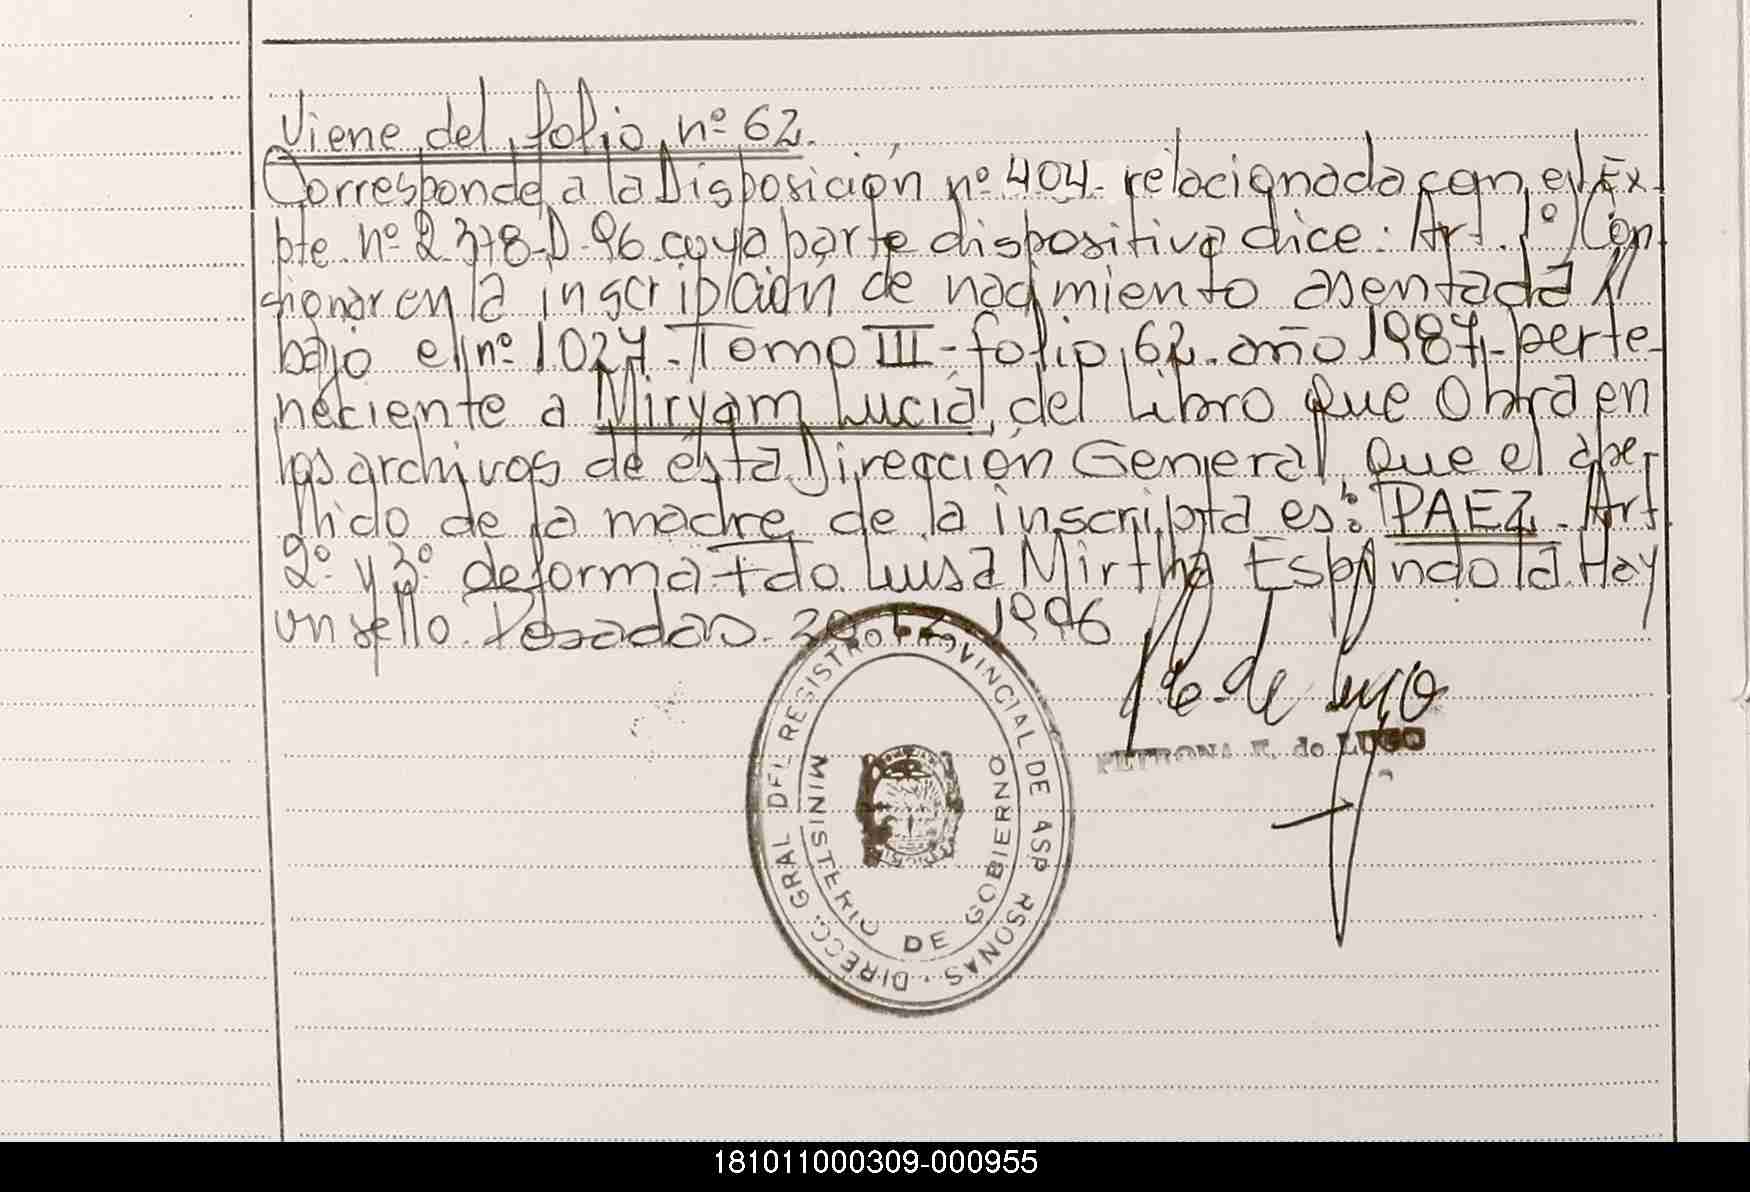 Viene del folio nº 62.
Corresponde a la Disposición nº 404. relacionada con el Ex-
pte. nº 2378-D-96 cuya parte dispositiva dice: Art. 1º) Con
signar en la inscripción de nacimiento asentada
bajo el nº 1.027. Tomo III - folio 62. año 1987, perte-
neciente a Miryam Lucia, del libro que obra en
los archivos de ésta Dirección General, que el ape-
llido de la madre de la inscripta es: PAEZ. Art.
2º y 3º de forma Fdo. Luisa Mirtha Espindola. Hay
un sello. Posadas. 20.12.1996
PETRONA E. de LUGO
DIRECC. GRAL DEL REGISTRO PROVINCIAL DE
MINISTERIO DE GOBIERNO
181011000309-000955